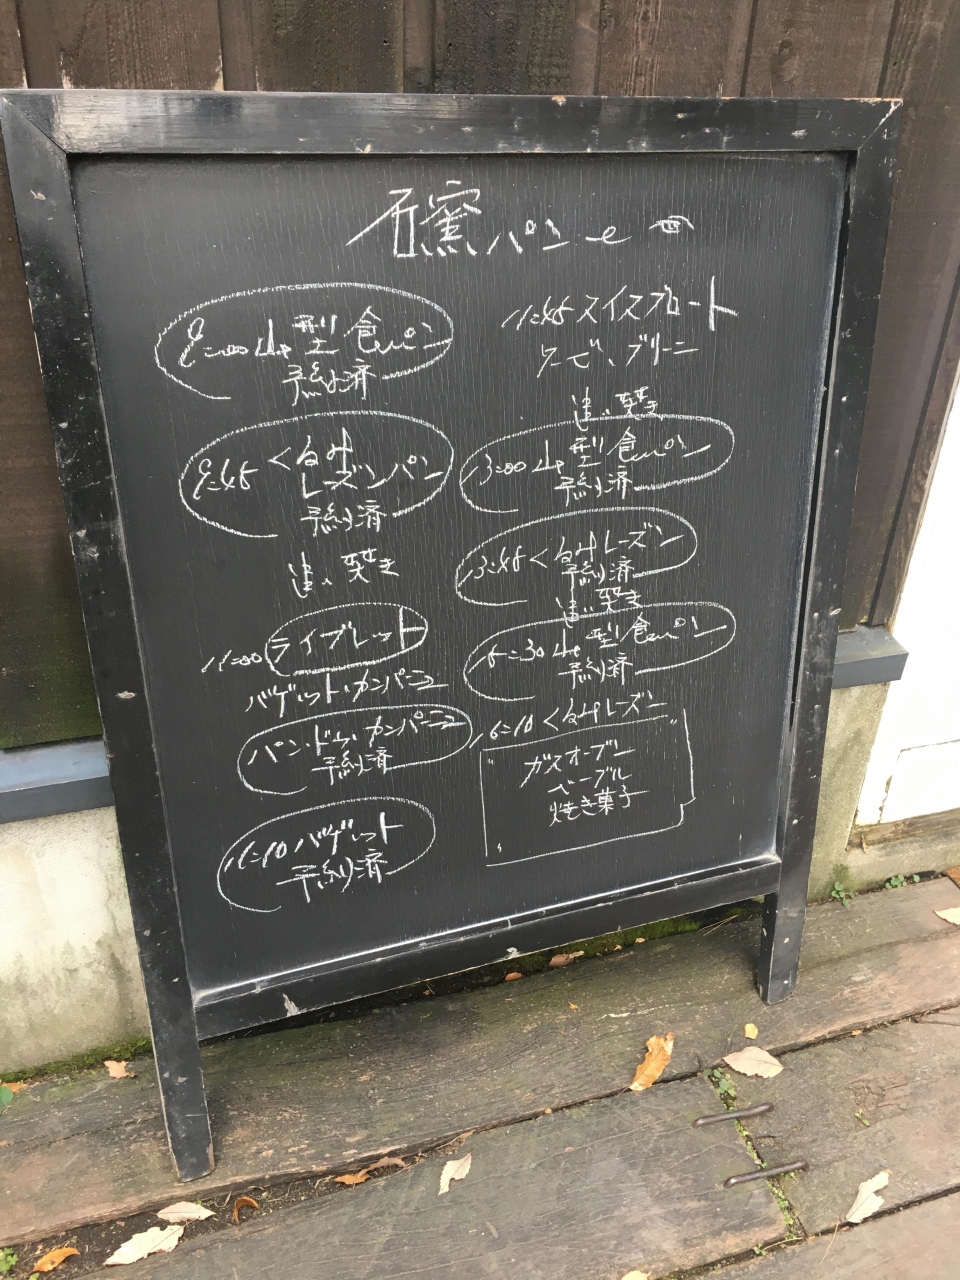 石窯パン
9:00 山型食パン
予約済
9:45 くるみ
レーズンパン
予約済
追い焚き
11:00 ライブレット
バゲット・カンパーニュ
パン・ドゥ・カンパーニュ
予約済
11:10 バゲット
予約済
11:45 スイスブロート
ブリーニ
追い焚き
13:00 山型食パン
予約済
13:45 くるみレーズン
予約済
追い焚き
15:30 山型食パン
予約済
16:10 くるみレーズン
ガスオーブン
ベーグル
焼き菓子